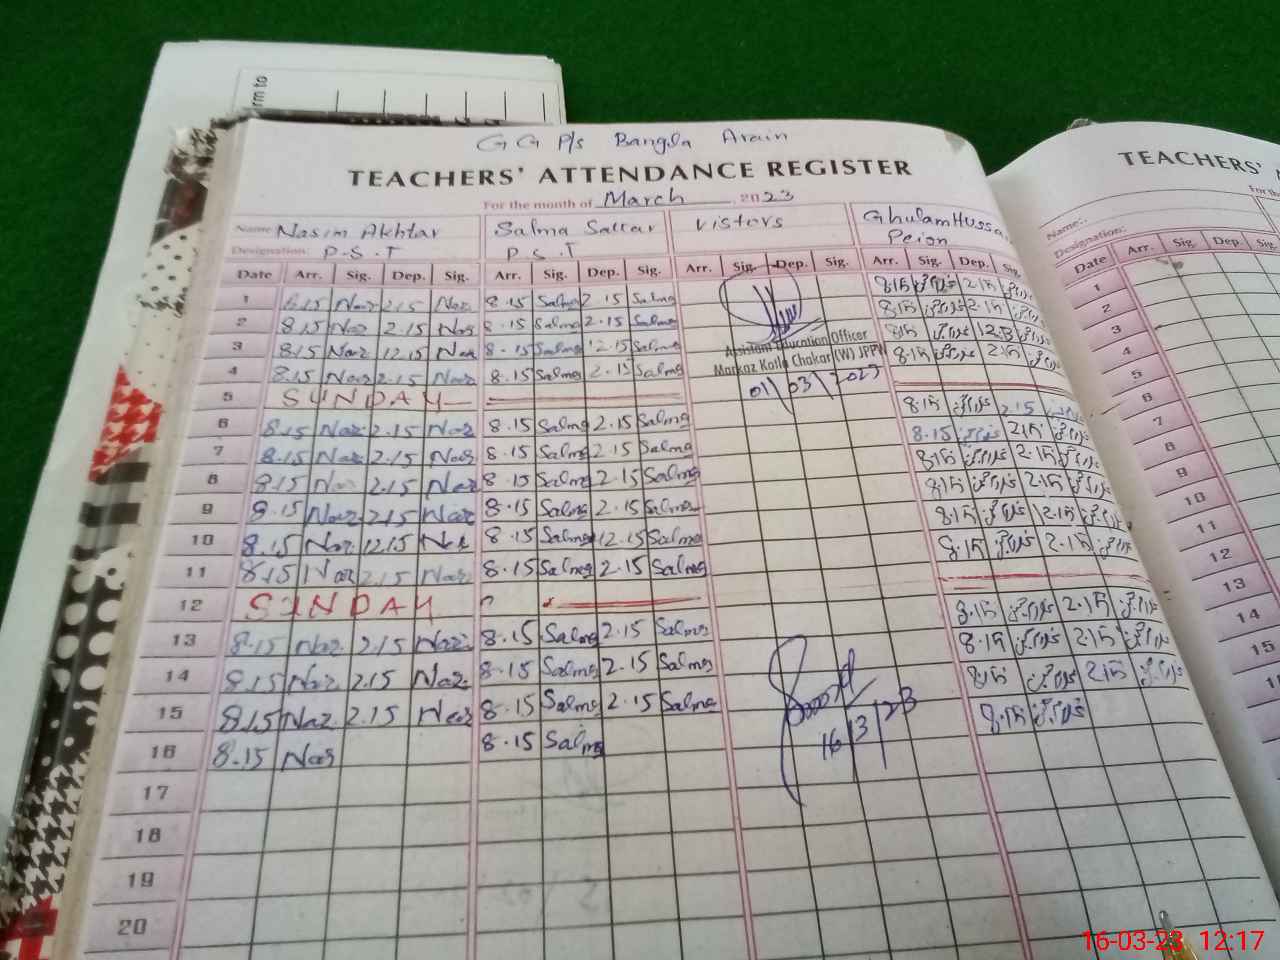 rm to
GG P/s Bangla Arain
TEACHERS' ATTENDANCE REGISTER
For the month of March 2023
Name: Nasim Akhtar Salma Sattar Vistors Ghulam Hussa
Designation: P.S.T P.S.T Peion
Date Arr. Sig. Dep. Sig. Arr. Sig. Dep. Sig. Arr. Sig. Dep. Sig. Arr. Sig. Dep. Sig.
1 8.15 Naz 2.15 Naz 8.15 Salma 2.15 Salma 8.15 2.15
2 8.15 Naz 2.15 Naz 8.15 Salma 2.15 Salma 8.15 2.15
3 8.15 Naz 12.15 Naz 8.15 Salma 12.15 Salma 8.15
Assistant Education Officer
4 8.15 Naz 2.15 Naz 8.15 Salma 2.15 Salma 8.15 2.15
Markaz Kotla Chakar (W) JPPW
01/03/2023
5 SUNDAY
6 8.15 Naz 2.15 Naz 8.15 Salma 2.15 Salma 8.15 2.15
7 8.15 Naz 2.15 Naz 8.15 Salma 2.15 Salma 8.15 2.15
8 8.15 Naz 2.15 Naz 8.15 Salma 2.15 Salma 8.15 2.15
9 8.15 Naz 2.15 Naz 8.15 Salma 2.15 Salma 8.15 2.15
10 8.15 Naz 12.15 Naz 8.15 Salma 12.15 Salma 8.15 12.15
11 8.15 Naz 2.15 Naz 8.15 Salma 2.15 Salma 8.15 2.15
12 SUNDAY
13 8.15 Naz 2.15 Naz 8.15 Salma 2.15 Salma 8.15 2.15
14 8.15 Naz 2.15 Naz 8.15 Salma 2.15 Salma 8.15 2.15
15 8.15 Naz 2.15 Naz 8.15 Salma 2.15 Salma 8.15 2.15
16 8.15 Naz 8.15 Salma 8.15
16/3/23
17
18
19
20
TEACHERS'
For th
Name:
Designation:
Date Arr. Sig. Dep. Sig.
1
2
3
4
5
6
7
8
9
10
11
12
13
14
15
16-03-23 12:17